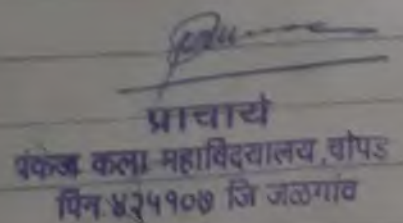 प्राचार्य
पंकज कला महाविद्यालय,चोपडा
पिन.४२५१०७ जि जळगांव